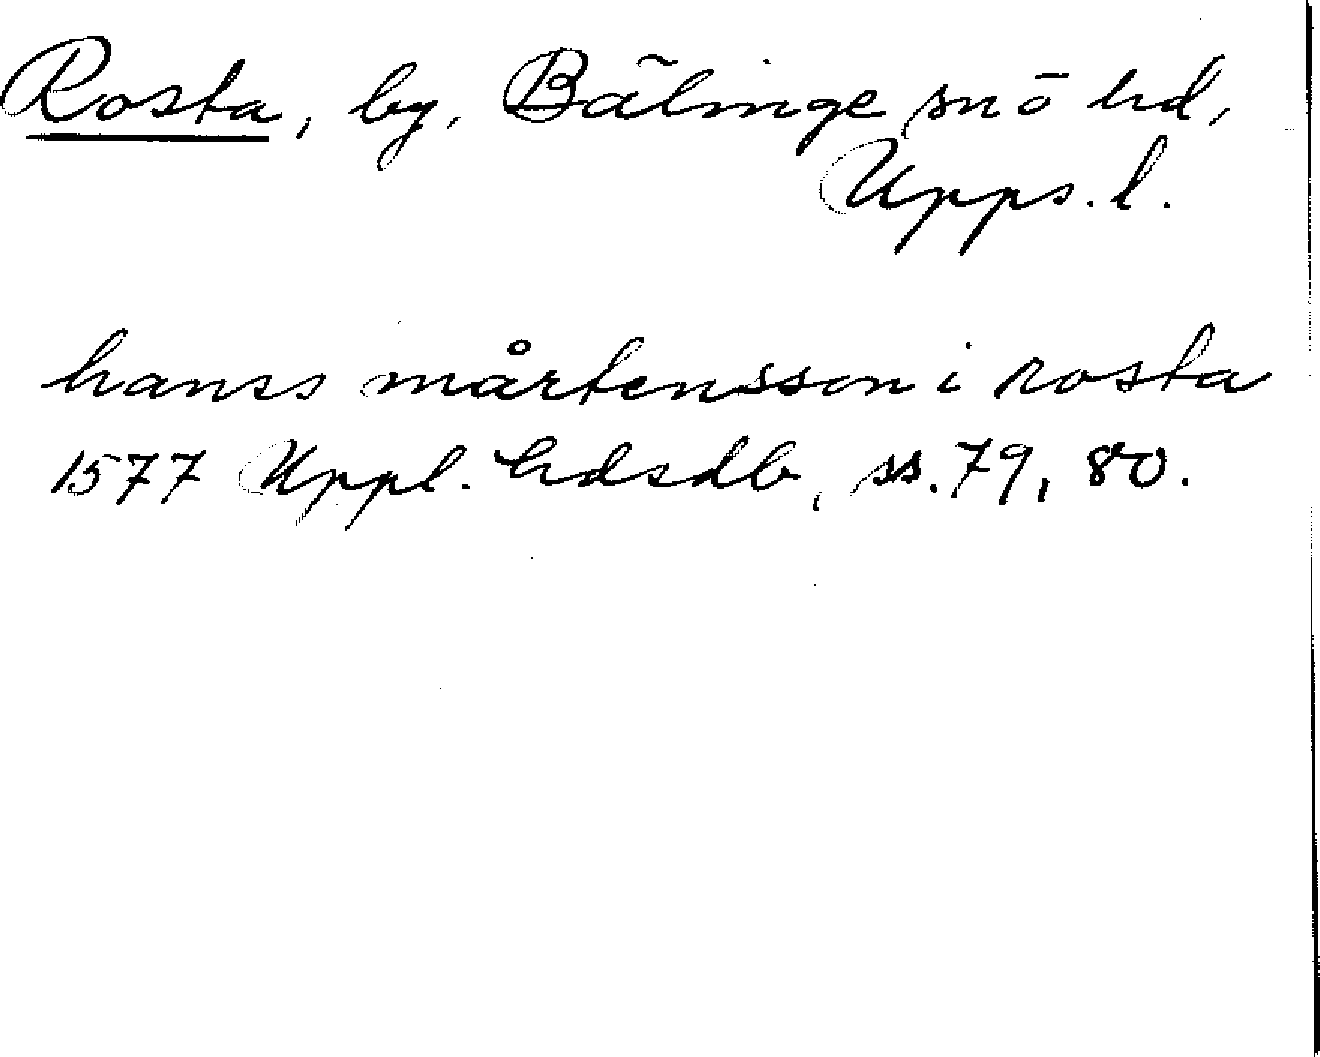 Rosta, by, Bälinge sn ö hd,
Upps. l.
hanss mårtensson i rosta
1577 Uppl. hdsdb, ss. 79, 80.